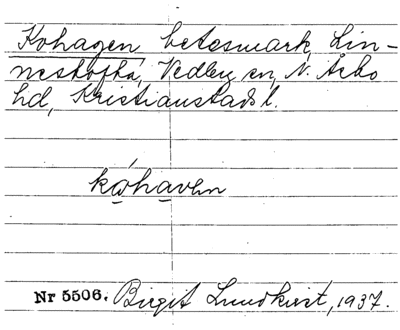 Kohagen, betesmark, Lin-
neskofta, Vedby sn, N. Åsbo
hd, Kristianstads l.
Nr 5506. Birgit Lundkvist, 1937.